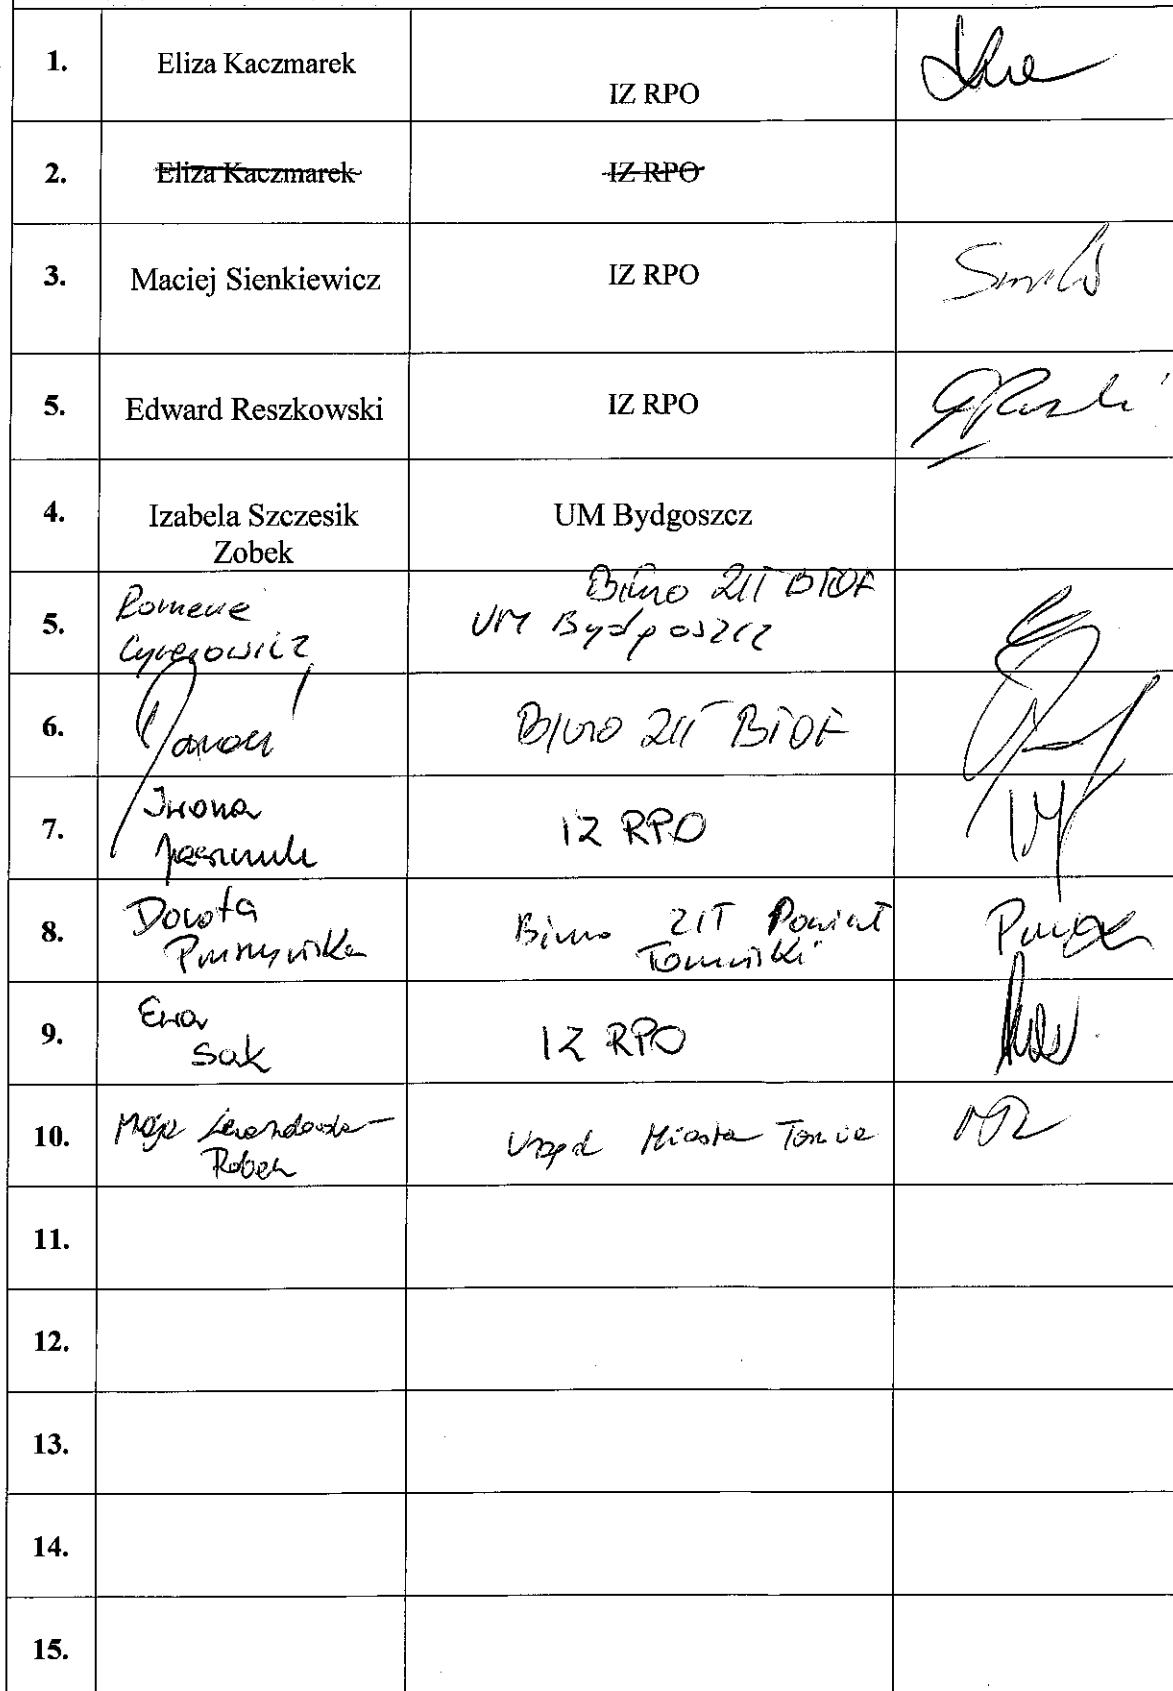 1. Eliza Kaczmarek IZ RPO
2. Eliza Kaczmarek IZ RPO
3. Maciej Sienkiewicz IZ RPO
5. Edward Reszkowski IZ RPO
4. Izabela Szczesik UM Bydgoszcz
Zobek
Biuro ZIT BTOF
5. UM Bydgoszcz
6. Biuro ZIT BTOF
7. Iwona IZ RPO
8. Dorota Biuro ZIT Powiat
Toruński
9. Ewa IZ RPO
Sak
10. Maja Lewandowska- Urząd Miasta Torunia
11.
12.
13.
14.
15.